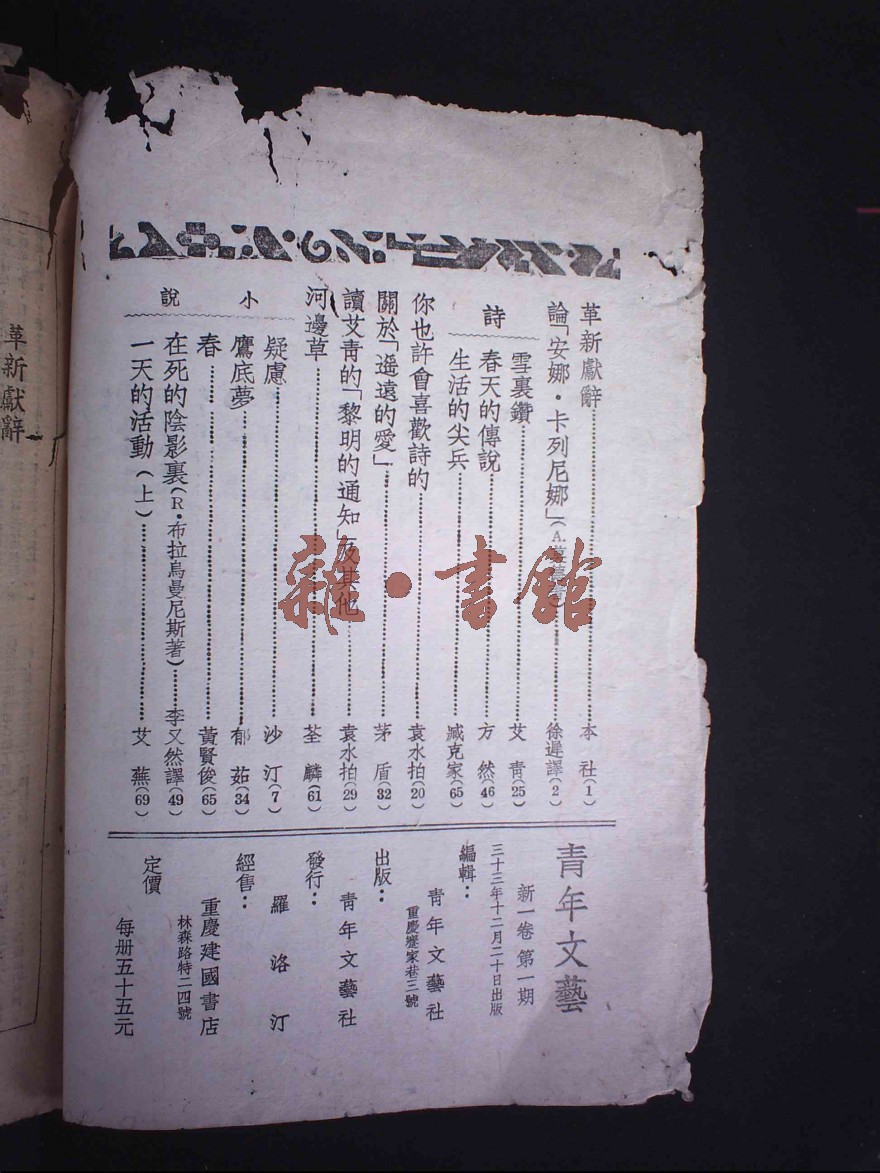 革新獻辭……本 社(1)
論「安娜·卡列尼娜」(A.……徐遲譯(2)
詩
雪裏鑽……艾 青(25)
春天的傳說……方 然(46)
生活的尖兵……臧克家(65)
你也許會喜歡詩的……袁水拍(20)
關於「遥遠的愛」……茅 盾(32)
讀艾青的「黎明的通知」及其他……袁水拍(29)
河邊草……荃 麟(61)
小 說
疑慮……沙 汀(7)
鷹底夢……郁 茹(34)
春……黃賢俊(65)
在死的陰影裏(R·布拉烏曼尼斯著)……李又然譯(49)
一天的活動(上)……艾 蕪(69)
青年文藝
新一卷第一期
三十三年十二月二十日出版
編輯：
青年文藝社
重慶壢家巷三號
出版：
青年文藝社
發行：
羅洛汀
經售：
重慶建國書店
林森路特二四號
定價
每册五十五元
革新獻辭
雜·書館